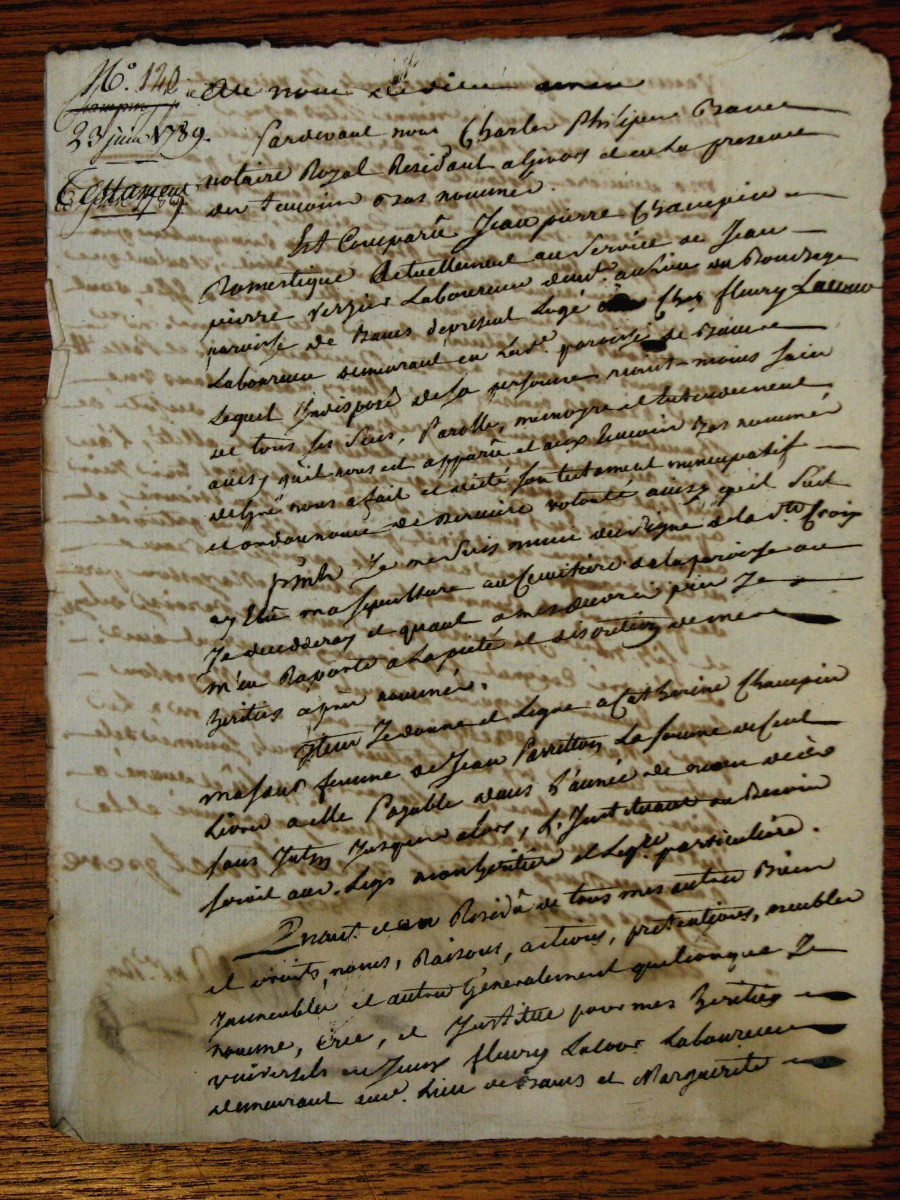 N.° 140
23 juin 1789.
Testament
Au nom de dieu amen
Pardevant nous Charles Philipe
notaire Royal Residant a Givors et en La presence
des temoins bas nommés.
Est Comparu Jean pierre Champin
Domestique actuellement au Service de Jean
pierre Verzier Laboureur demt. au Lieu du
parroisse de depresent Logé Chez fleury
Laboureur demeurant en Lade. parroisse de
Lequel Indisposé de sa personne neant-moins sain
de tous ses sens, Parolle, memoyre et entendement
ainsy qu'il nous est apparu et aux temoins bas nommés
de gré nous a fait et dicté son testament nuncupatif
et ordonnance de derniere volonté ainsy qu'il suit
Je me suis muni du Signe de la Ste. Croix
ay Elu ma sepulture au Cemitiere de la parroisse ou
Je decedderay et quant a mes œuvres pies Je
m'en Raporte a La pieté et discretion de mes
heritiers apres nommés.
Item Je donne et Legue a Catherine Champin
ma sœur femme de Jean La somme de Cent
Livres a elle Payable dans L'année de mon décès
sans Jusques alors, L'Instituant au Besoin
aud. Legs mon heritiere et particuliere.
Quant et au Residu de tous mes autres Biens
et droits, noms, Raisons, actions, pretentions, meubles
Immeubles et autres Généralement quelconques Je
nomme, crée, et Institue pour mes heritiers
universels en fleury Laboureur
demeurant aud. Lieu de et Marguerite